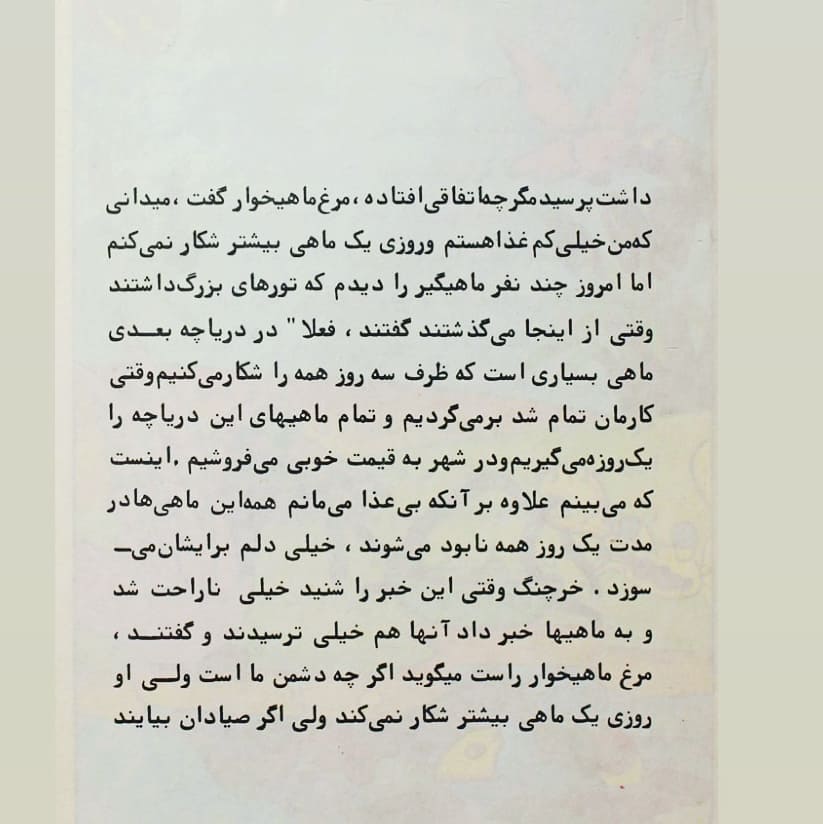 داشت پرسید مگر چه اتفاقی افتاده ، مرغ ماهیخوار گفت ، میدانی
که من خیلی کم غذا هستم وروزی یک ماهی بیشتر شکار نمی‌کنم
اما امروز چند نفر ماهیگیر را دیدم که تورهای بزرگ داشتند
وقتی از اینجا می‌گذشتند گفتند ، فعلا" در دریاچه بعدی
ماهی بسیاری است که ظرف سه روز همه را شکار می‌کنیم وقتی
کارمان تمام شد برمی‌گردیم و تمام ماهیهای این دریاچه را
یک روزه می‌گیریم ودر شهر به قیمت خوبی می‌فروشیم . اینست
که می‌بینم علاوه بر آنکه بی‌عذا می‌مانم همه این ماهی‌ها در
مدت یک روز همه نابود می‌شوند ، خیلی دلم برایشان می‌ـ
سوزد . خرچنگ وقتی این خبر را شنید خیلی ناراحت شد
و به ماهیها خبر داد آنها هم خیلی ترسیدند و گفتنـد ،
مرغ ماهیخوار راست میگوید اگر چه دشمن ما است ولـی او
روزی یک ماهی بیشتر شکار نمی‌کند ولی اگر صیادان بیایند